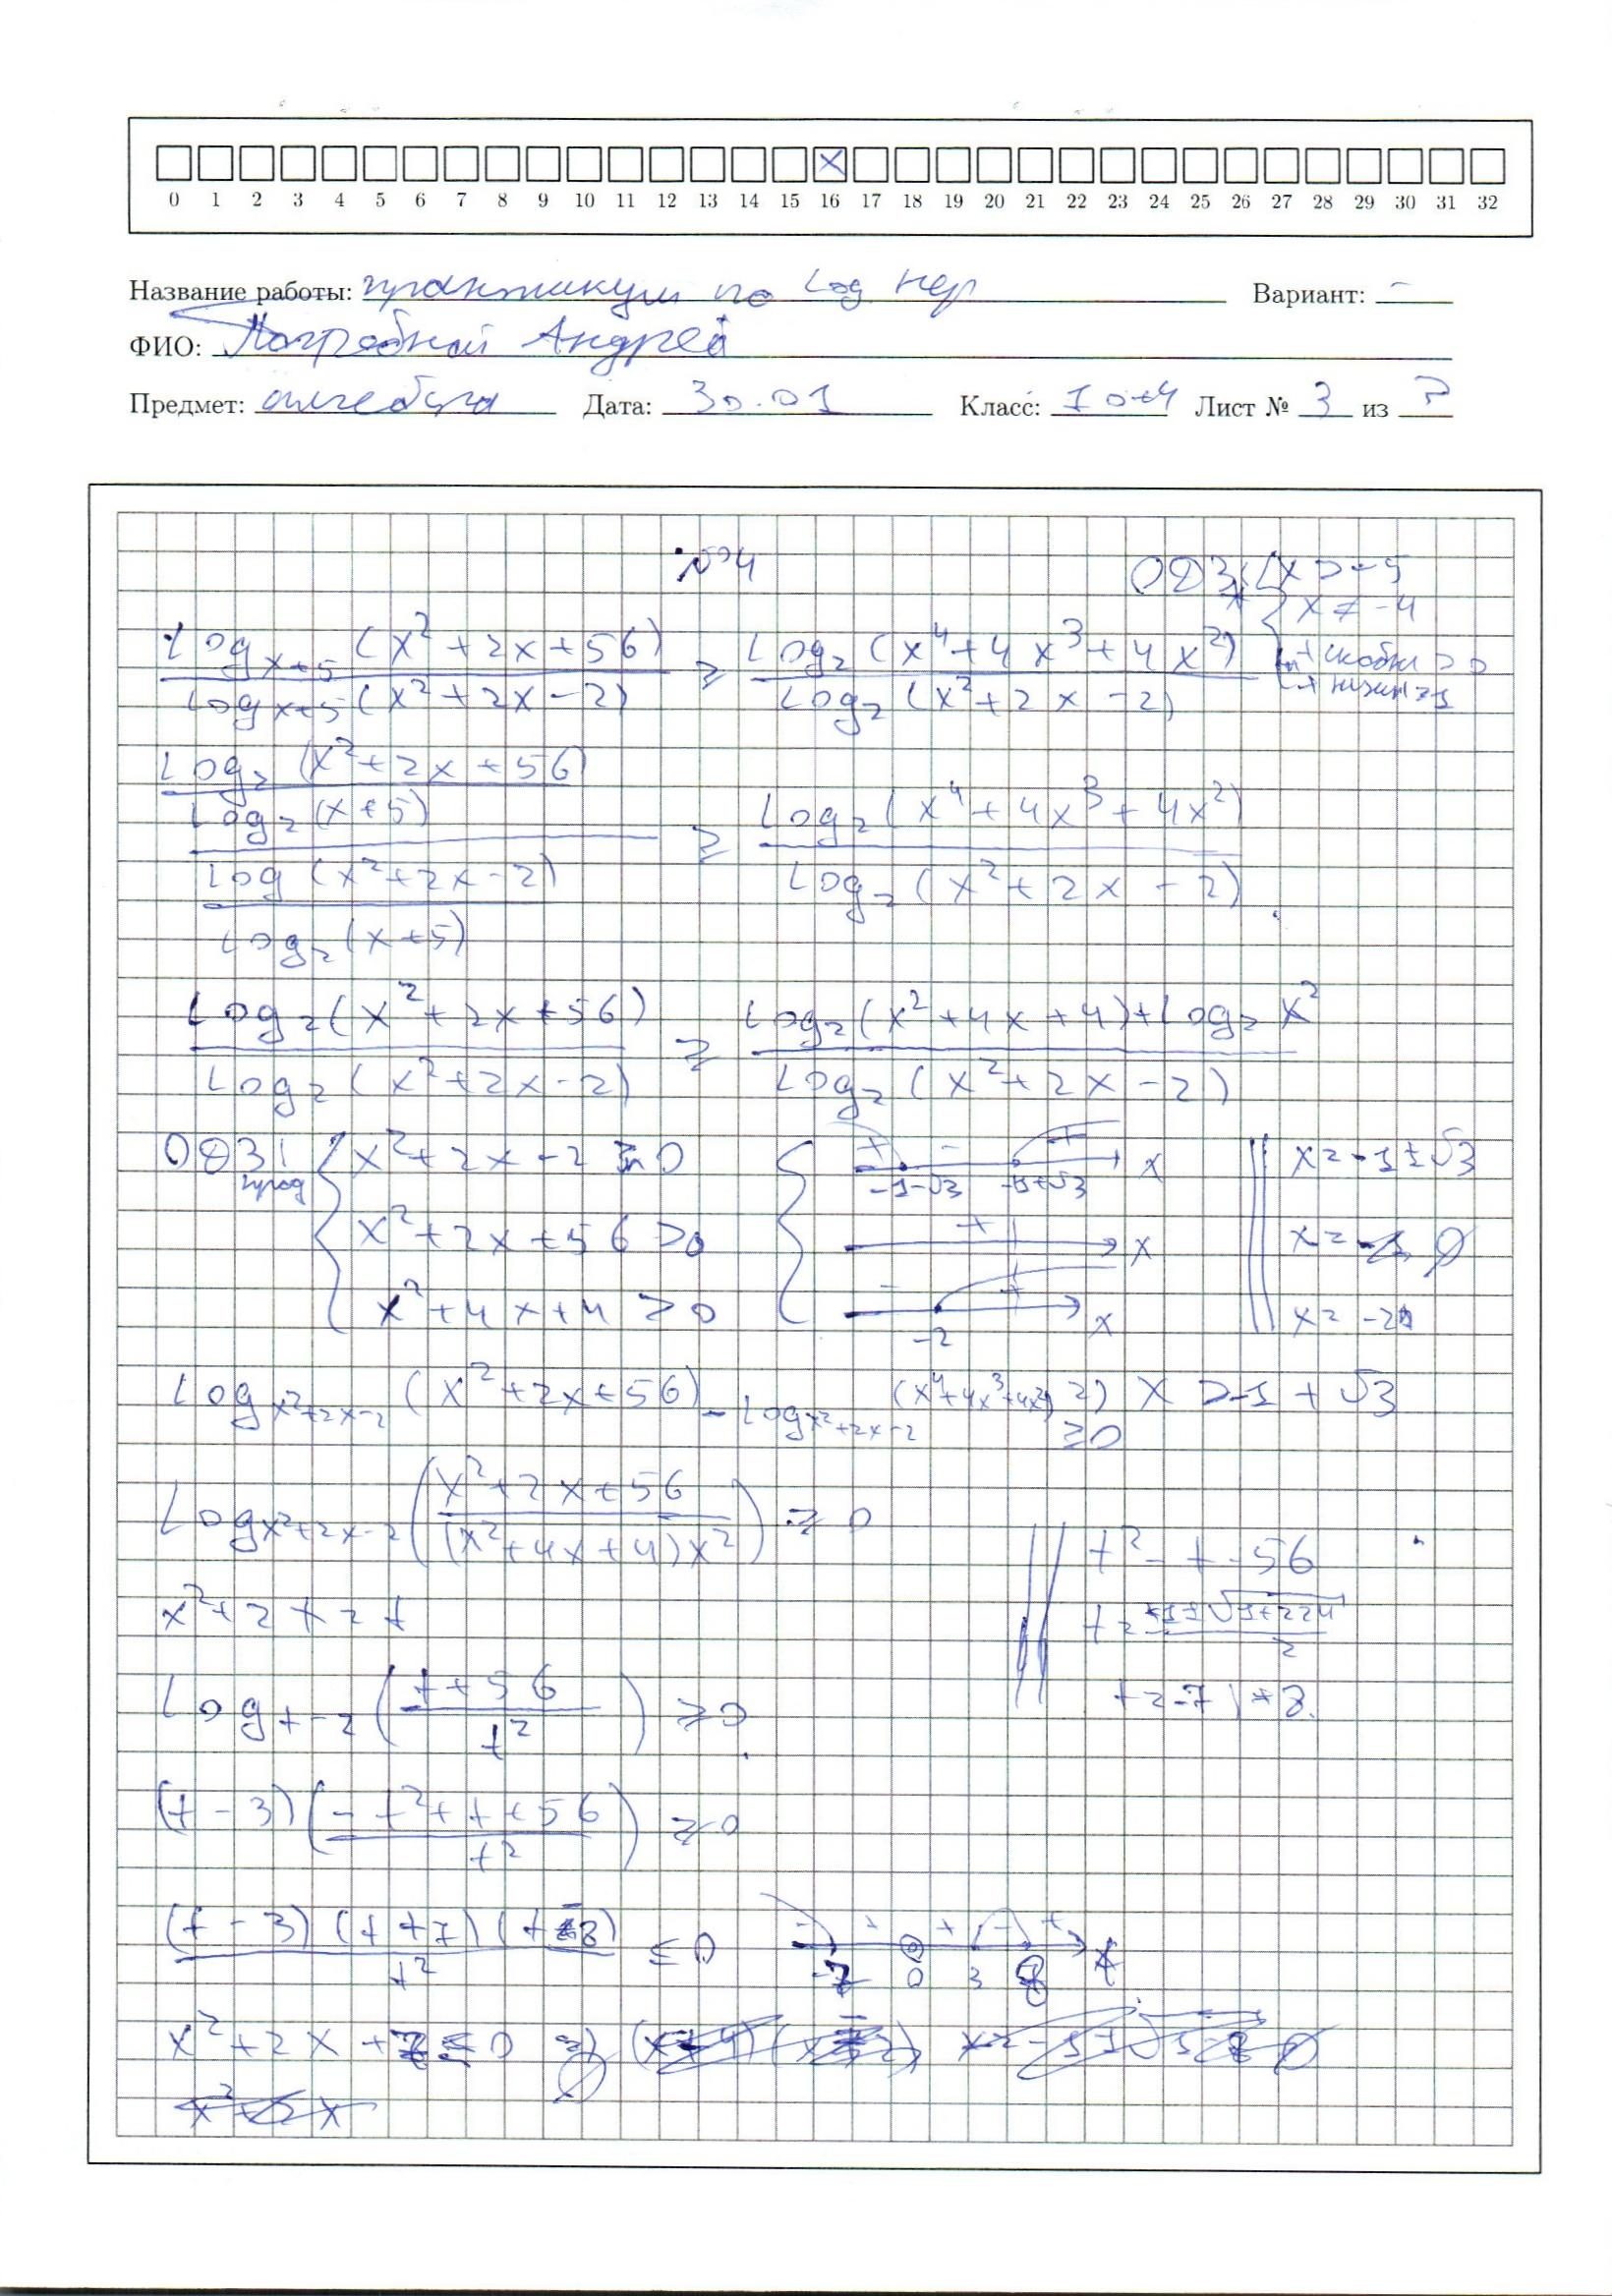 0 1 2 3 4 5 6 7 8 9 10 11 12 13 14 15 16 17 18 19 20 21 22 23 24 25 26 27 28 29 30 31 32
Название работы: практикум по Log нер Вариант: –
ФИО: Погребной Андрей
Предмет: алгебра Дата: 30.01 Класс: 10-4 Лист № 3 из ?
№4
ОДЗ: { x > -5
x ≠ -4
+ скобки > 0
+ нижн ≠ 1
Log_{x+5}(x²+2x+56) / Log_{x+5}(x²+2x-2) ≥ Log₂(x⁴+4x³+4x²) / Log₂(x²+2x-2)
(Log₂(x²+2x+56) / Log₂(x+5)) / (Log(x²+2x-2) / Log₂(x+5)) ≥ Log₂(x⁴+4x³+4x²) / Log₂(x²+2x-2)
Log₂(x²+2x+56) / Log₂(x²+2x-2) ≥ (Log₂(x²+4x+4)+Log₂x²) / Log₂(x²+2x-2)
ОДЗ прод { x²+2x-2 > 0 { + -1-√3 – -1+√3 + x || x = -1±√3
x²+2x+56 > 0 + x x = ∅
x²+4x+4 > 0 – -2 + x x = -2
Log_{x²+2x-2}(x²+2x+56) - Log_{x²+2x-2}(x⁴+4x³+4x²) ≥ 0 2) x > -1+√3
Log_{x²+2x-2}((x²+2x+56) / ((x²+4x+4)x²)) ≥ 0
x²+2x = t
Log_{t-2}((t+56) / t²) ≥ 0
|| t²-t-56
t = (+1±√(1+224)) / 2
t = -7 | +8.
(t-3)((-t²+t+56) / t²) ≥ 0
(t-3)(t+7)(t-8) / t² ≤ 0 – -7 + 0 + 3 – 8 + t
x²+2x+7 ≤ 0 ⇒ ∅